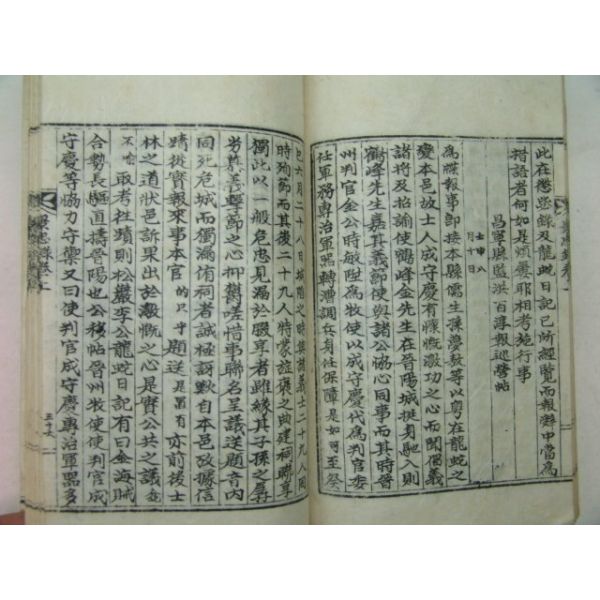 此在懲毖錄及龍蛇日記已所經覽而報辭中當為
措語者何如是煩費耶相考施行事
昌寧縣監洪百淳報巡營帖
壬申八
月十日
為牒報事卽接本縣儒生等以粤在龍蛇之
變本邑故士人成守慶有慷慨激切之心而聞倡義
諸將及招諭使鶴峯金先生在晉陽城挺身馳入則
鶴峯先生嘉其義節使與諸公協心同事而其時晉
州判官金公時敏陞為牧使以成守慶代為判官委
任軍務專治軍器轉漕調兵身任保障是如可至癸
巳六月二十八日城陷之時與諸義士二十九人同
時殉節而其後二十九人特蒙旌褒之典建祠聯享
獨此以一般危忠見漏於腏享者雖緣其子孫之孱
劣其義蟬節之心抑鬱嗟惜事聯名呈議送題音內
同死危城而獨漏侑祠者誠極訝歎自本邑更據信
蹟從實報來事本官的只中題送是畱有亦前後士
林之道狀邑訴果出於慷慨之心是實公共之議
不喩取考往蹟則松巖李公龍蛇日記有曰金海賊
合勢長驅直擣晉陽也公移帖晉州牧使使判官成
守慶等協力守禦又曰使判官成守慶專治軍器多